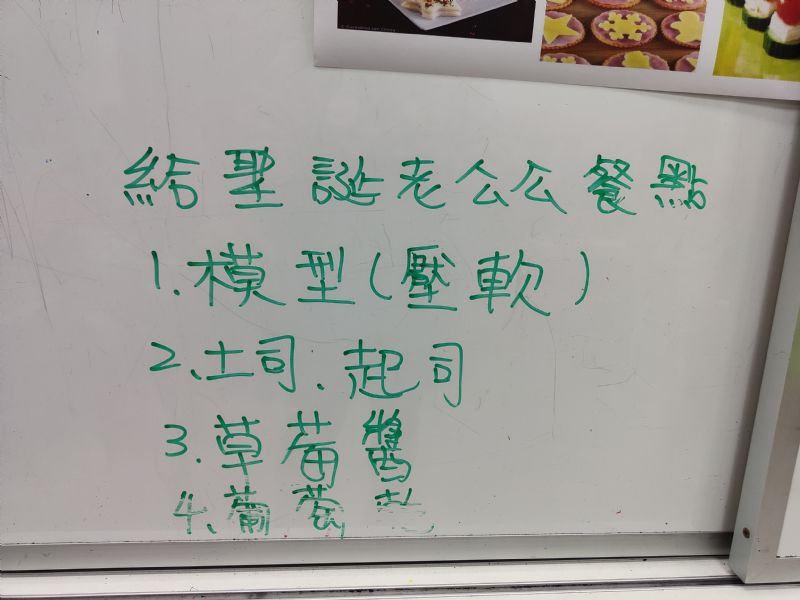 給聖誕老公公餐點
1.模型(壓軟)
2、土司、起司
3.草莓醬
4、葡萄乾